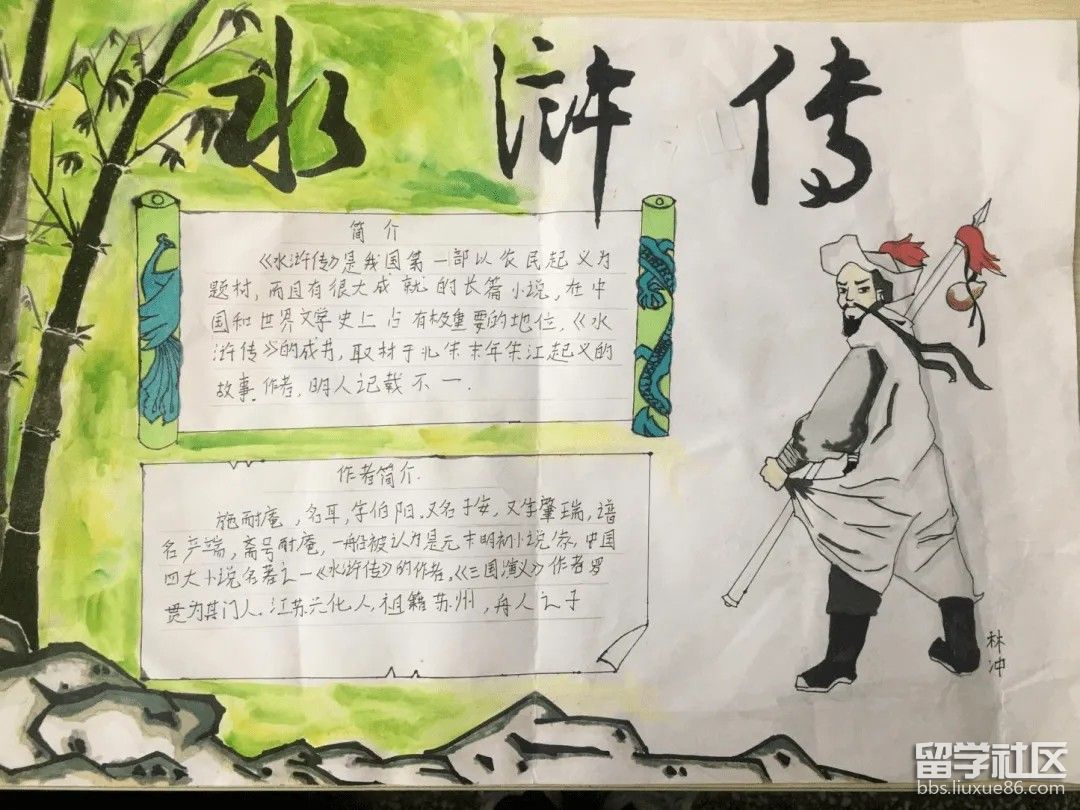 水浒传
简介
《水浒传》是我国第一部以农民起义为
题材,而且有很大成就的长篇小说,在中
国和世界文学史上占有极重要的地位,《水
浒传》的成书,取材于北宋末年宋江起义的
故事.作者,明人记载不一.
作者简介.
施耐庵,名耳,字伯阳.又名子安,又字肇瑞,谱
名彦端,斋号耐庵,一般被认为是元末明初小说家,中国
四大小说名著之一《水浒传》的作者。《三国演义》作者罗
贯为其门人.江苏兴化人,祖籍苏州,舟人之子
林冲
留学社区
bbs.liuxue86.com